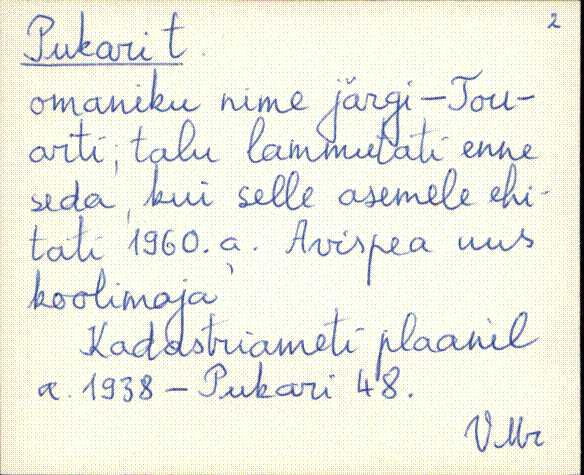 2
Pukari t.
omaniku nime järgi – Tou-
arti, talu lammutati enne
seda, kui selle asemele ehi-
tati 1960. a. Avispea uus
koolimaja
Kadastriameti plaanil
a. 1938 – Pukari 48.
VMr